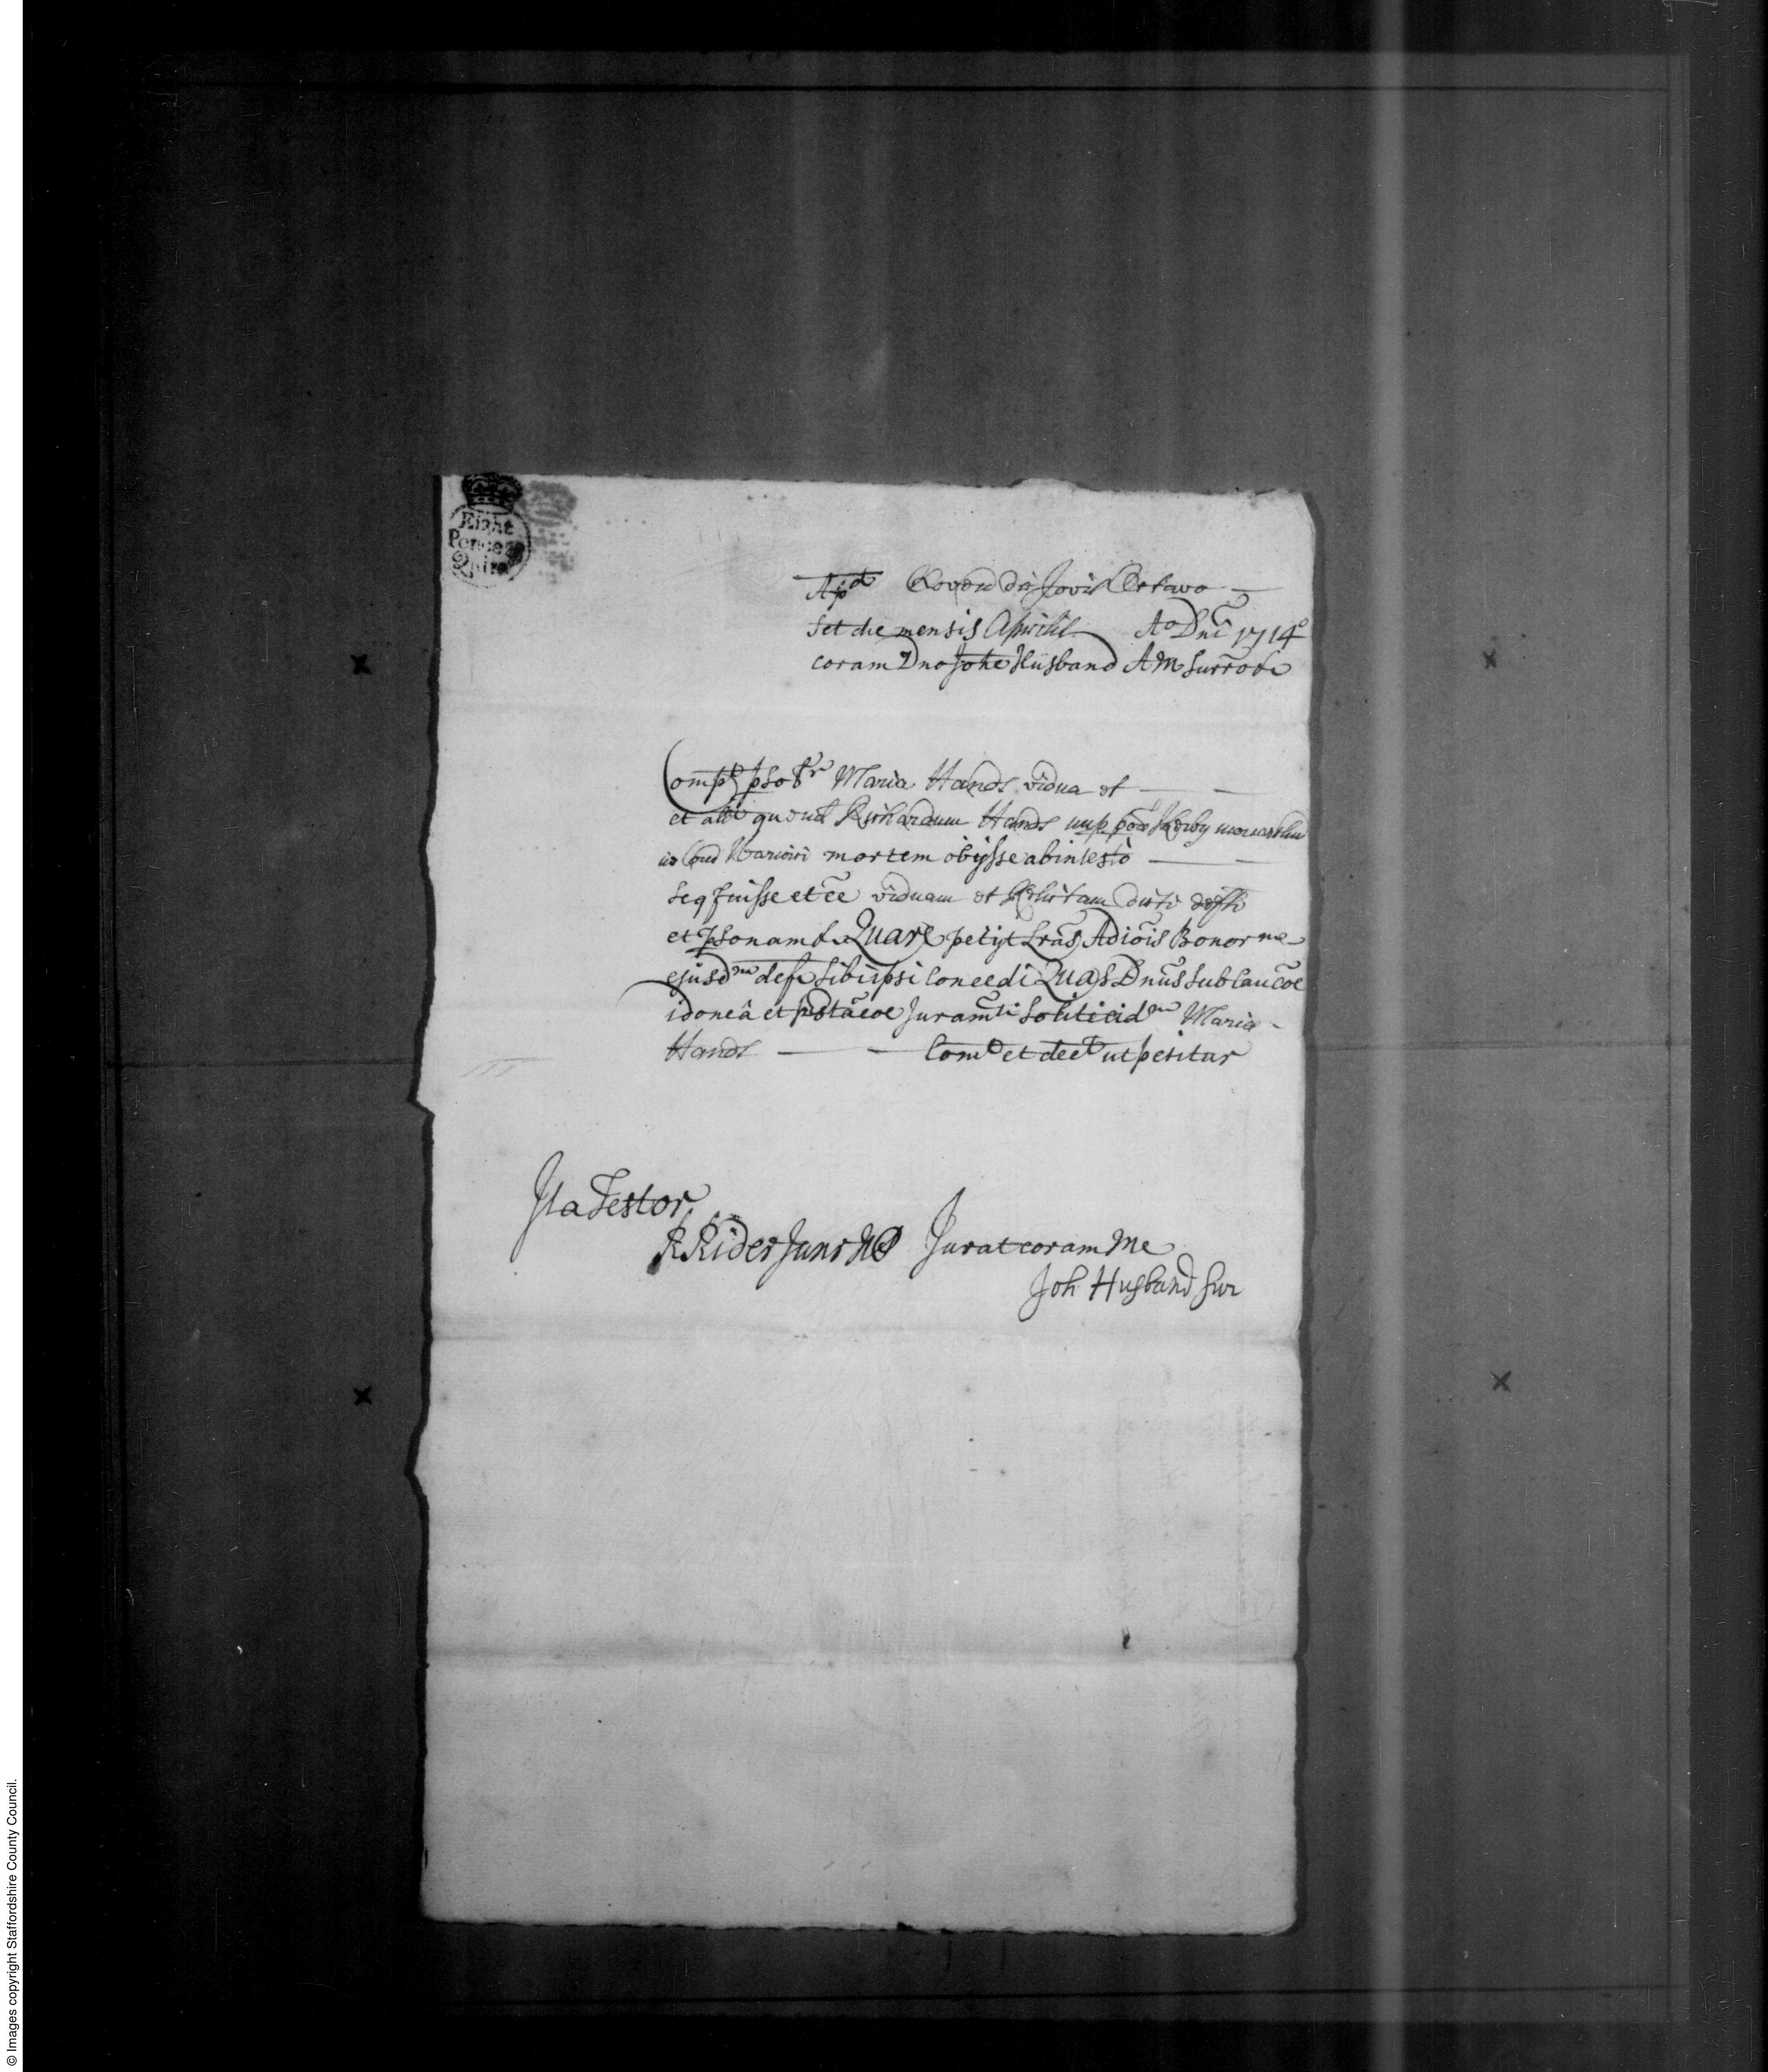 Eight
Pence p
Quire
Apd Covene die Jovis Octavo
Set die mensis Aprilis Ao Dni 1714o
coram Dno Johe Husband AM Surrote
Compt psotr Maria Hands vidua et
et alt quend Richardum Hands nup poe mercatorem
in Com Warwici mortem obijsse abintesto
Seq fuisse et ee viduam et Relictam dicti defti
et psonam &c Quare petijt Lras Adiois Bonor ne
ejusdm def sibi ipsi Concedi Quas Dnus sub Caucoe
idoneâ et pstacoe Juramti Soliti eidm Maria
Hands Comt et decrt ut petitur
Ita Testor
R Rider Junr NP Jurat coram Me
Joh Husband Sur
© Images copyright Staffordshire County Council.